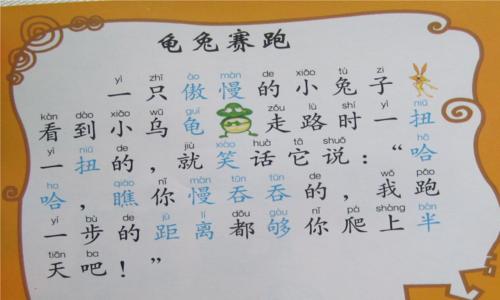 龟兔赛跑
yì zhī ào màn de xiǎo tù zi
一只傲慢的小兔子
kàn dào xiǎo wū guī zǒu lù shí yì niǔ
看到小乌龟走路时一扭
yì niǔ de jiù xiào huà tā shuō hā
一扭的，就笑话它说：“哈
ha qiáo nǐ màn tūn tūn de wǒ pǎo
哈，瞧你慢吞吞的，我跑
yí bù de jù lí dōu gòu nǐ pá shàng bàn
一步的距离都够你爬上半
tiān ba
天吧！”